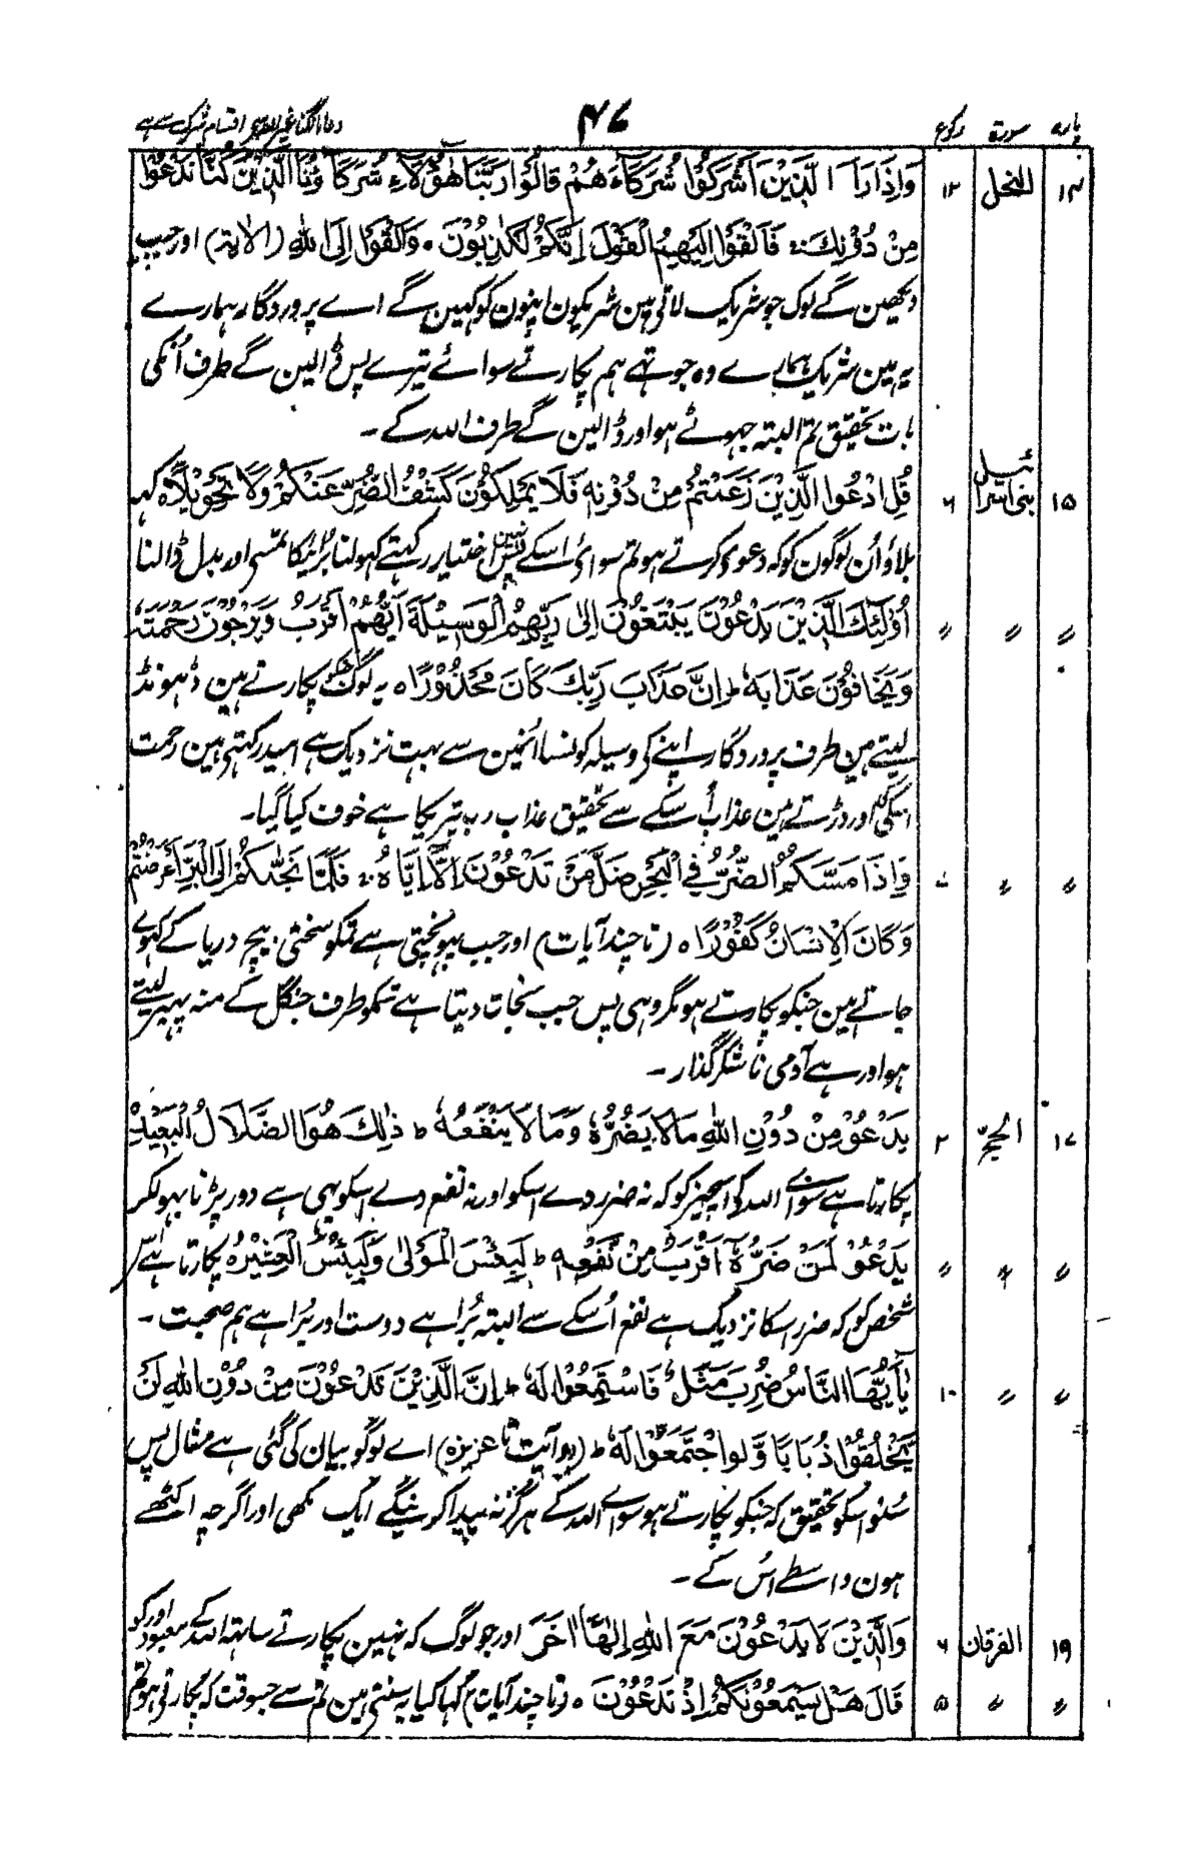 پارہ سورۃ رکوع ۴۶۷ دعا مانگنا غیر اللہ سے اقسام شرک سے ہے
۱۴ النحل ۱۲ وَاِذَا رَاَ الَّذِیْنَ اَشْرَکُوْا شُرَکَآءَهُمْ قَالُوْا رَبَّنَا هٰٓؤُلَآءِ شُرَکَآؤُنَا الَّذِیْنَ کُنَّا نَدْعُوْا
مِنْ دُوْنِکَ ۚ فَاَلْقَوْا اِلَیْهِمُ الْقَوْلَ اِنَّکُمْ لَکٰذِبُوْنَ ۰ وَاَلْقَوْا اِلَی اللّٰهِ (الاٰیة) اور جب
دیکھین گے لوگ جو شریک لاتی ہین شریکون اپنون کو کہین گے اے پروردگار ہمارے
یہ ہین شریک ہمارے وہ جو تھے ہم پکارتے سوائے تیرے پس ڈالین گے طرف اُنکی
بات تحقیق تم البتہ جہوٹے ہو اور ڈالین گے طرف اللہ کے ۔
۱۵ بنی اسرائیل ۶ قُلِ ادْعُوا الَّذِیْنَ زَعَمْتُمْ مِّنْ دُوْنِهٖ فَلَا یَمْلِکُوْنَ کَشْفَ الضُّرِّ عَنْکُمْ وَلَا تَحْوِیْلًا۵ کہہ
بلاؤ اُن لوگون کو کہ دعوی کرتے ہو تم سوائے اسکے پس نہین اختیار رکہتے کہولنا بُرائیکا تمسی اور بدل ڈالنا
〃 〃 〃 اُولٰٓئِکَ الَّذِیْنَ یَدْعُوْنَ یَبْتَغُوْنَ اِلٰی رَبِّهِمُ الْوَسِیْلَةَ اَیُّهُمْ اَقْرَبُ وَیَرْجُوْنَ رَحْمَتَهٗ
وَیَخَافُوْنَ عَذَابَهٗ ؕ اِنَّ عَذَابَ رَبِّکَ کَانَ مَحْذُوْرًا ۵ یہ لوگ جنکو پکارتے ہین ڈہونڈ
لیتے ہین طرف پروردگار اپنے کی وسیلہ کونسا انہین سے بہت نزدیک ہے امید رکہتی ہین رحمت
اسکی اور ڈرتے ہین عذاب اُسکے سے تحقیق عذاب رب تیریکا ہے خوف کیا گیا۔
〃 〃 ۷ وَاِذَا مَسَّکُمُ الضُّرُّ فِی الْبَحْرِ ضَلَّ مَنْ تَدْعُوْنَ اِلَّآ اِیَّاهُ ۚ فَلَمَّا نَجّٰکُمْ اِلَی الْبَرِّ اَعْرَضْتُمْ
وَکَانَ الْاِنْسَانُ کَفُوْرًا ۵ (تا چند آیات) اور جب پہونچتی ہے تمکو سختی بیچ دریا کے کہوئے
جاتے ہین جنکو پکارتے ہو مگر وہی پس جب نجات دیتا ہے تمکو طرف جنگل کے منہ پہیر لیتے
ہو اور ہے آدمی نا شکر گذار ۔
۱۷ الحج ۲ یَدْعُوْ مِنْ دُوْنِ اللّٰهِ مَا لَا یَضُرُّهٗ وَمَا لَا یَنْفَعُهٗ ؕ ذٰلِکَ هُوَ الضَّلَالُ الْبَعِیْدُ
پکارتا ہے سوائے اللہ کے اُسچیز کو کہ نہ ضرر دے اسکو اور نہ نفع دے اسکو یہی ہے دور پڑنا بہولکر
〃 〃 〃 یَدْعُوْ لَمَنْ ضَرُّهٗٓ اَقْرَبُ مِنْ نَّفْعِهٖ ؕ لَبِئْسَ الْمَوْلٰی وَلَبِئْسَ الْعَشِیْرُ۵ پکارتا ہے اس
شخص کو کہ ضرر اسکا نزدیک ہے نفع اُسکے سے البتہ بُرا ہے دوست اور بُرا ہے ہم صحبت ۔
〃 〃 ۱۰ یٰٓاَیُّهَا النَّاسُ ضُرِبَ مَثَلٌ فَاسْتَمِعُوْا لَهٗ ؕ اِنَّ الَّذِیْنَ تَدْعُوْنَ مِنْ دُوْنِ اللّٰهِ لَنْ
یَّخْلُقُوْا ذُبَابًا وَّلَوِ اجْتَمَعُوْا لَهٗ ؕ (دو آیت تا عزیزہ) اے لوگو بیان کی گئی ہے مثال پس
سُنو اسکو تحقیق کہ جنکو پکارتے ہو سوائے اللہ کے ہرگز نہ پیدا کرینگے ایک مکھی اور اگرچہ اکٹھے
ہون واسطے اس کے ۔
۱۹ الفرقان ۶ وَالَّذِیْنَ لَا یَدْعُوْنَ مَعَ اللّٰهِ اِلٰهًا اٰخَرَ اور جو لوگ کہ نہین پکارتے ساتہہ اللہ کے معبود اور کو
〃 〃 ۵ قَالَ هَلْ یَسْمَعُوْنَکُمْ اِذْ تَدْعُوْنَ ۵ (تا چند آیات) کہا کیا یہ سنتی ہین تم سے جسوقت کہ پکارتی ہو تم